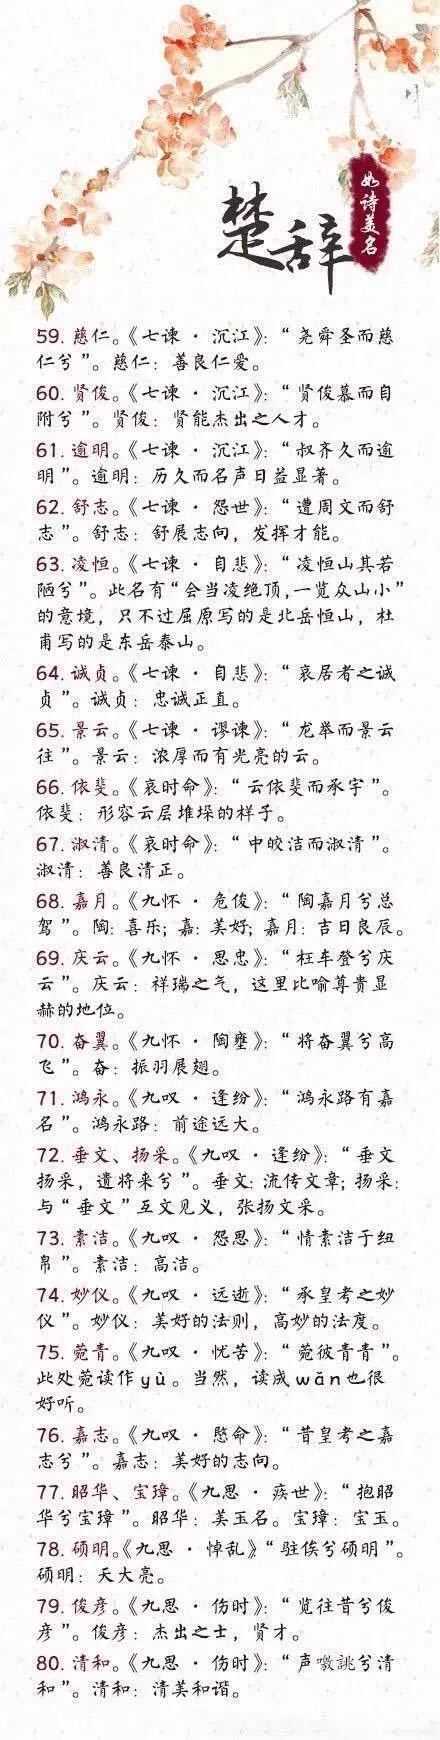 楚辞
如诗美名
59. 慈仁。《七谏 · 沉江》：“尧舜圣而慈
仁兮”。慈仁：善良仁爱。
60. 贤俊。《七谏 · 沉江》：“贤俊慕而自
附兮”。贤俊：贤能杰出之人才。
61. 逾明。《七谏 · 沉江》：“叔齐久而逾
明”。逾明：历久而名声日益显著。
62. 舒志。《七谏 · 怨世》：“遭周文而舒
志”。舒志：舒展志向，发挥才能。
63. 凌恒。《七谏 · 自悲》：“凌恒山其若
陋兮”。此名有“会当凌绝顶，一览众山小”
的意境，只不过屈原写的是北岳恒山，杜
甫写的是东岳泰山。
64. 诚贞。《七谏 · 自悲》：“哀居者之诚
贞”。诚贞：忠诚正直。
65. 景云。《七谏 · 谬谏》：“龙举而景云
往”。景云：浓厚而有光亮的云。
66. 依斐。《哀时命》：“云依斐而承宇”。
依斐：形容云层堆垛的样子。
67. 淑清。《哀时命》：“中皎洁而淑清”。
淑清：善良清正。
68. 嘉月。《九怀 · 危俊》：“陶嘉月兮总
驾”。陶：喜乐；嘉：美好；嘉月：吉日良辰。
69. 庆云。《九怀 · 思忠》：“枉车登兮庆
云”。庆云：祥瑞之气，这里比喻尊贵显
赫的地位。
70. 奋翼。《九怀 · 陶壅》：“将奋翼兮高
飞”。奋：振羽展翅。
71. 鸿永。《九叹 · 逢纷》：“鸿永路有嘉
名”。鸿永路：前途远大。
72. 垂文、扬采。《九叹 · 逢纷》：“垂文
扬采，遗将来兮”。垂文：流传文章；扬采：
与“垂文”互文见义，张扬文采。
73. 素洁。《九叹 · 怨思》：“情素洁于纽
帛”。素洁：高洁。
74. 妙仪。《九叹 · 远逝》：“承皇考之妙
仪”。妙仪：美好的法则，高妙的法度。
75. 菀青。《九叹 · 忧苦》：“菀彼青青”。
此处菀读作 yù 。当然，读成 wǎn 也很
好听。
76. 嘉志。《九叹 · 愍命》：“昔皇考之嘉
志兮”。嘉志：美好的志向。
77. 昭华、宝璋。《九思 · 疾世》：“抱昭
华兮宝璋”。昭华：美玉名。宝璋：宝玉。
78. 硕明。《九思 · 悼乱》“驻俟兮硕明”。
硕明：天大亮。
79. 俊彦。《九思 · 伤时》：“览往昔兮俊
彦”。俊彦：杰出之士，贤才。
80. 清和。《九思 · 伤时》：“声噭誂兮清
和”。清和：清美和谐。